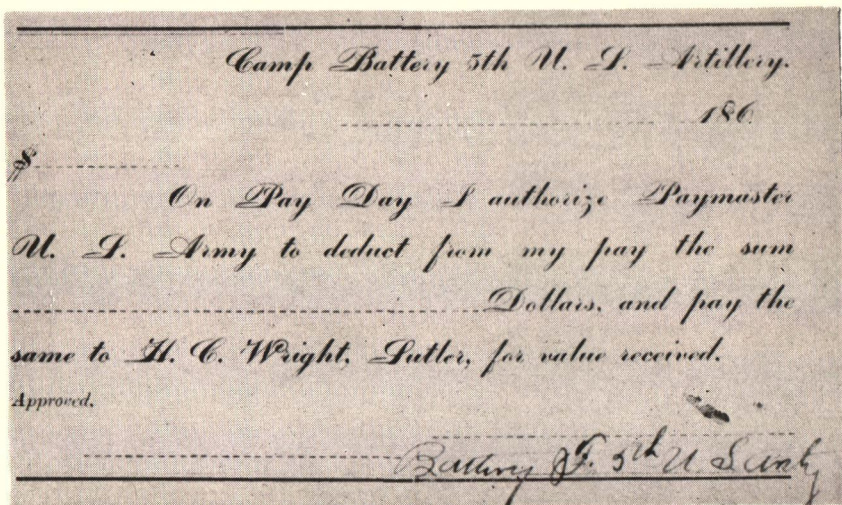 Camp Battery 5th U. S. Artillery.
186
$
On Pay Day I authorize Paymaster
U. S. Army to deduct from my pay the sum
Dollars, and pay the
same to H. C. Wright, Sutler, for value received.
Approved.
Battery F. 5th U S Arty